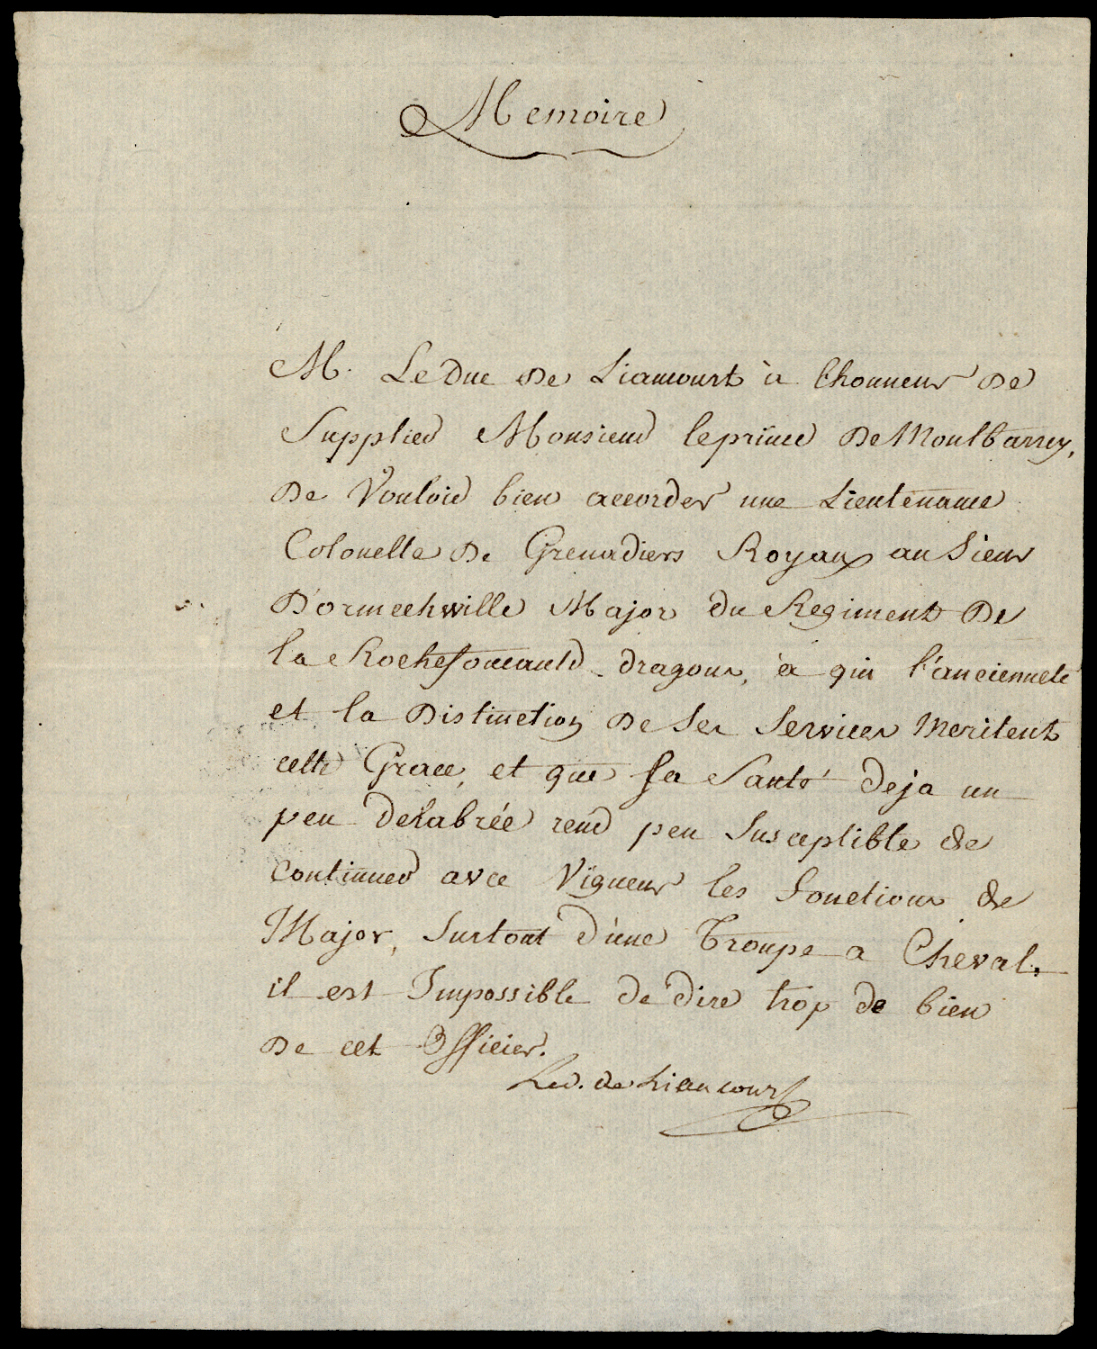 Memoire
M. Le Duc de Liancourt à lhonneur de
Supplier Monsieur leprince De Montbarrey,
De Vouloir bien accorder une Lieutenance
Colonelle de Grenadiers Royaux au Sieur
D'ormechwille Major du Regiment De
la Rochefoucauld dragons, à qui l'ancienneté
et la Distinction de Ses Services Meritent
cette Grace, et que Sa Santé deja un
peu délabrée rend peu Susceptible de
Continuer avec Vigueur les fonctions de
Major, Surtout d'une Troupe a Cheval.
il est Impossible de dire trop de bien
De cet Officier.
Le d. de Liancourt